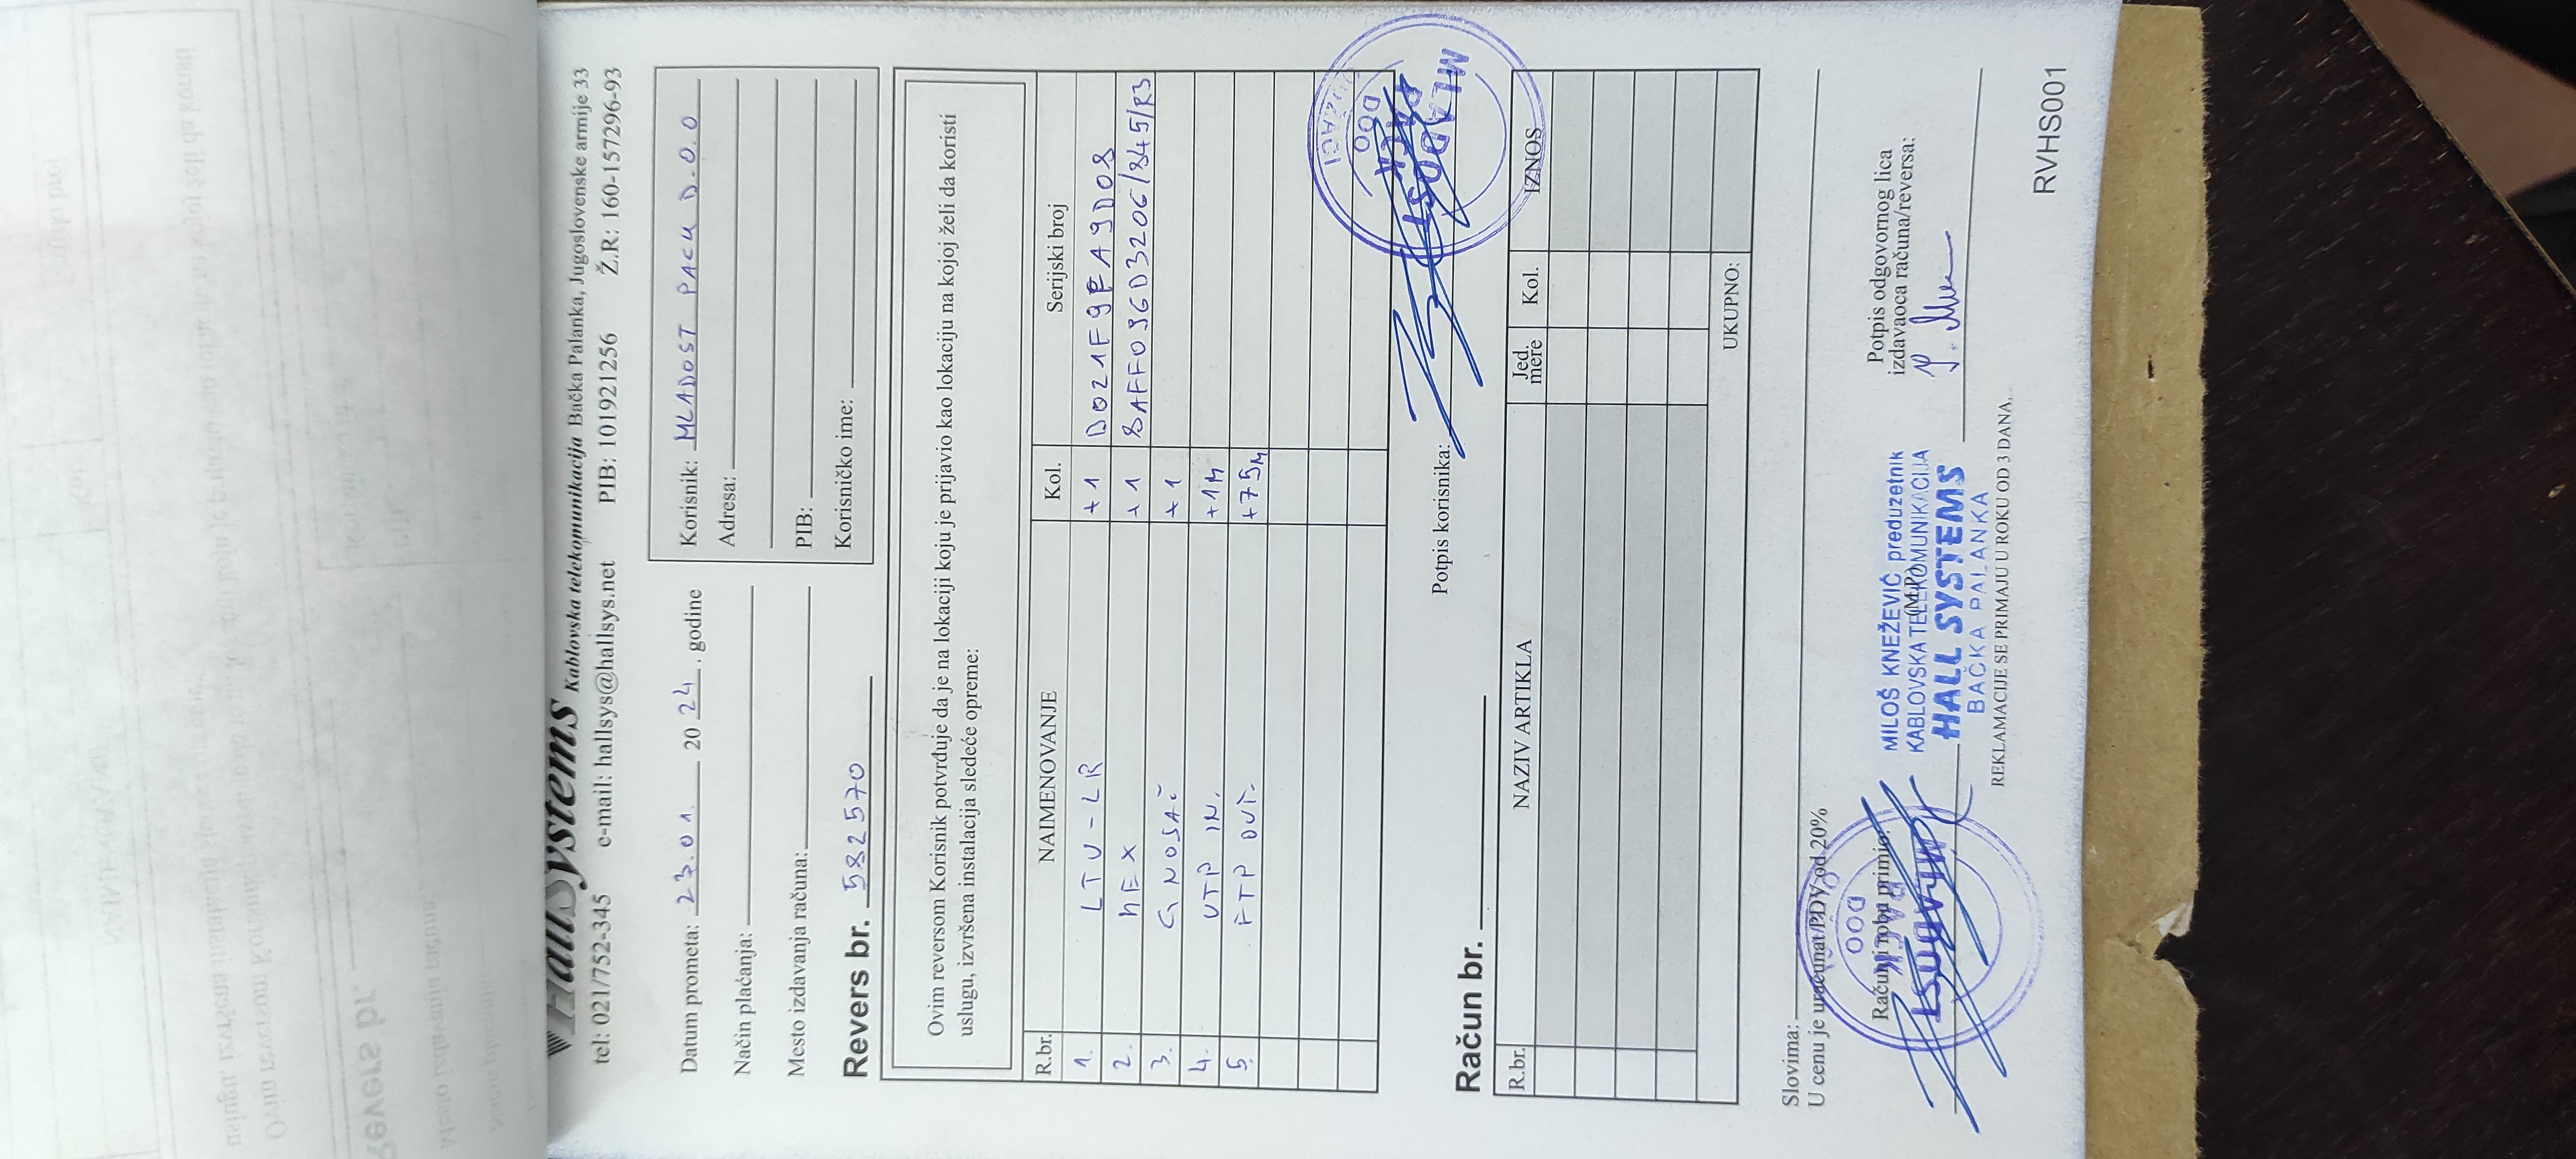 HallSystems Kablovska telekomunikacija Bačka Palanka, Jugoslovenske armije 33
tel: 021/752-345 e-mail: hallsys@hallsys.net PIB: 101921256 Ž.R: 160-157296-93
Datum prometa: 23.01. 2024. godine
Način plaćanja:
Mesto izdavanja računa:
Revers br. 582570
Korisnik: MLADOST PACK D.O.O
Adresa:
PIB:
Korisničko ime:
Ovim reversom Korisnik potvrđuje da je na lokaciji koju je prijavio kao lokaciju na kojoj želi da koristi
uslugu, izvršena instalacija sledeće opreme:
R.br. NAIMENOVANJE Kol. Serijski broj
1. LTU-LR +1
2. hEX +1
3. G NOSAČ +1
4. UTP IN. +1M
5. FTP OUT. +75M
Potpis korisnika:
MLADOST
PACK
DOO
Račun br.
R.br. NAZIV ARTIKLA Jed. mere Kol. IZNOS
UKUPNO:
Slovima:
U cenu je uračunat PDV od 20%
Račun i robu primio:
MLADOST
PACK
DOO
MILOŠ KNEŽEVIĆ preduzetnik
KABLOVSKA TELEKOMUNIKACIJA
(M.P.)
HALL SYSTEMS
BAČKA PALANKA
Potpis odgovornog lica
izdavaoca računa/reversa:
REKLAMACIJE SE PRIMAJU U ROKU OD 3 DANA.
RVHS001